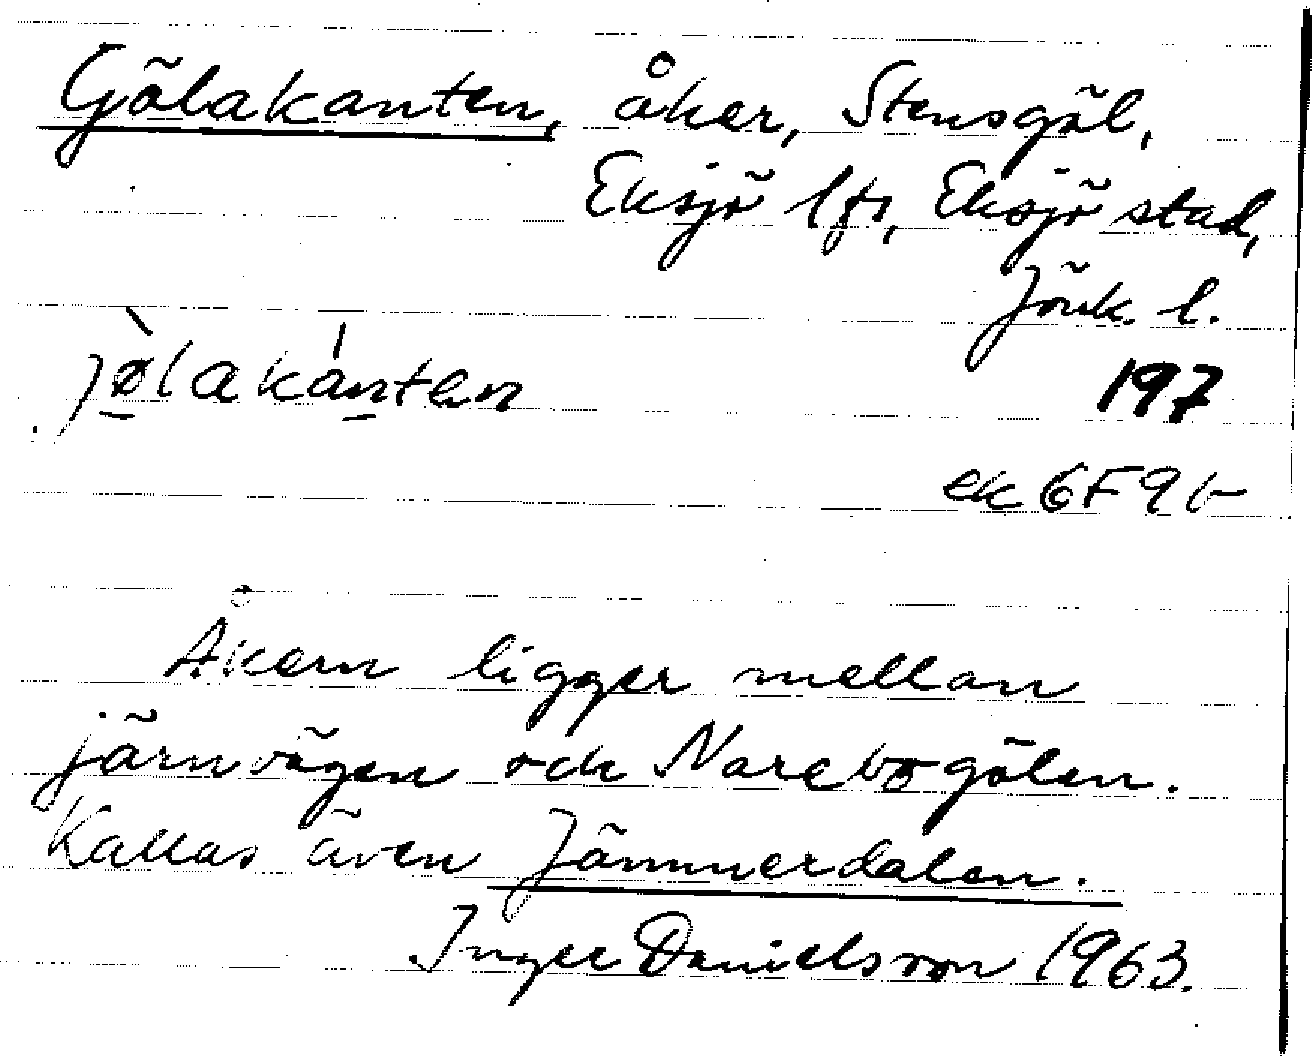 Gölakanten, åker, Stensgöl,
Eksjö lfs, Eksjö stad,
Jönk. l.
jø̀lakánten 197
ek 6F9b
Åkern ligger mellan
järnvägen och Narebogölen.
Kallas även Jämmerdalen.
Inger Danielsson 1963.